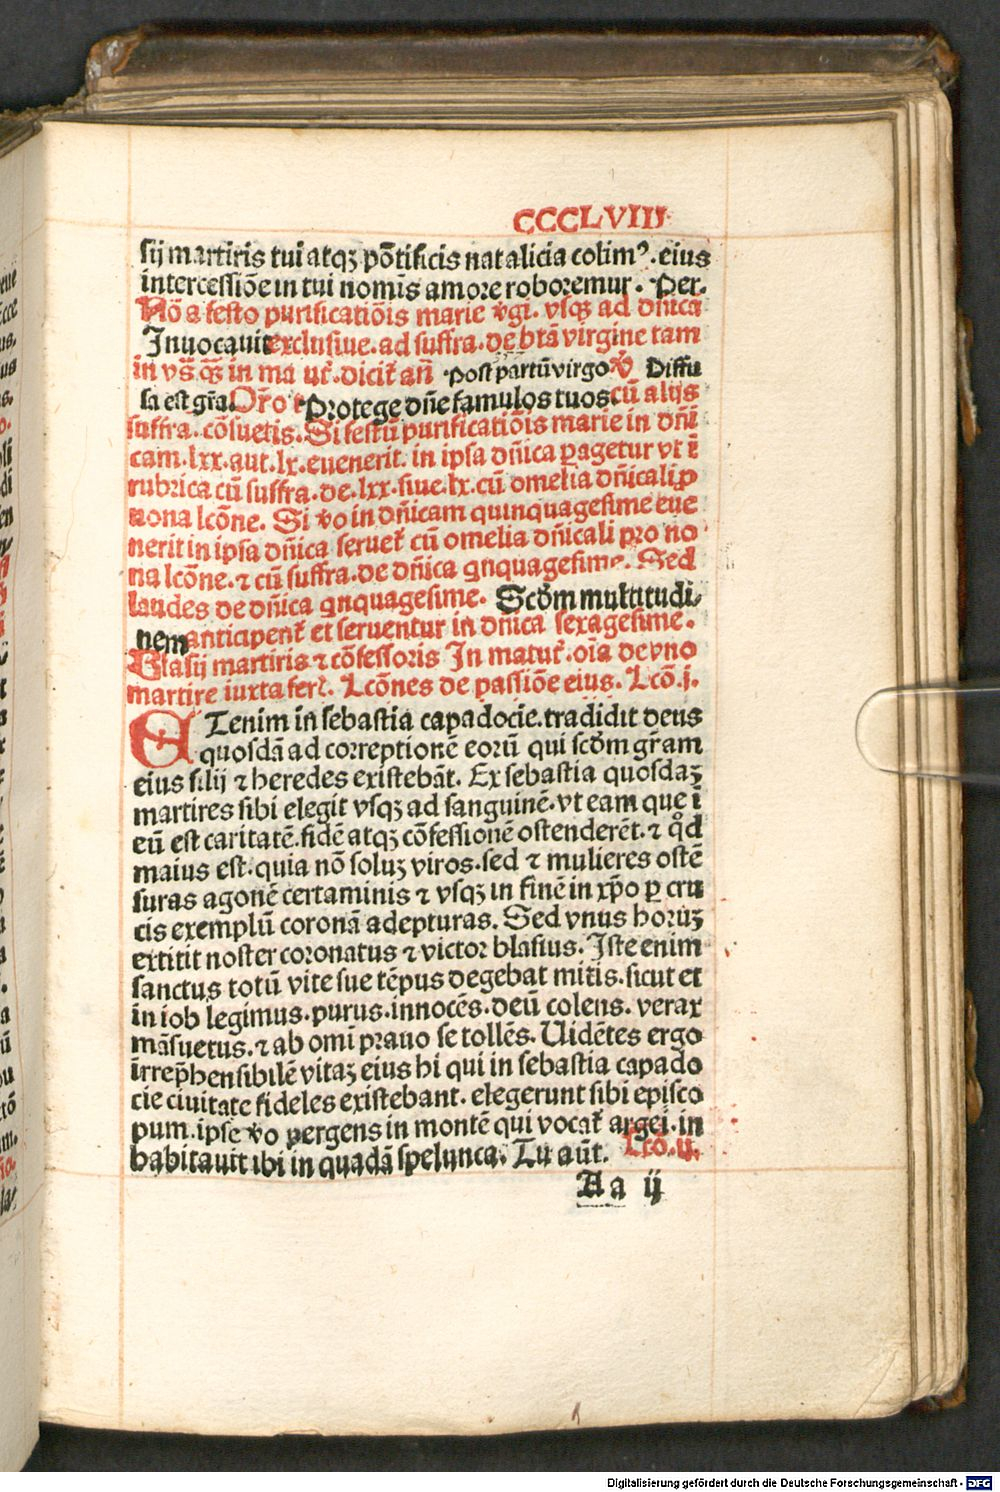 CCCLVIII
sij martiris tui atqꝫ põtificis natalicia colim⁹. eius
intercessiõe in tui nomĩs amore roboremur. Per.
Nõ a festo purificatiõis marie ṽgĩ. vsqꝫ ad dñica
Inuocauit exclusiue. ad suffra. de btã virgine tam
in vs̃. qꝫ̃ in ma ut̃. dicit̃ añ Post partũ virgo ℣ Diffu
sa est gr̃a. Or̃o Protege dñe famulos tuos cũ alijs
suffra. cõsuetis. Si festũ purificatiõis marie in dñi
cam. lxx. aut. lx. euenerit. in ipsa dñica ꝑagetur vt ĩ
rubrica cũ suffra. de. lxx. siue. lx. cũ omelia dñicali ꝓ
nona lcõne. Si ṽo in dñicam quinquagesime eue
nerit in ipsa dñica seruet̃ cũ omelia dñicali pro no
na lcõne. ⁊ cũ suffra. de dñica qnquagesime. Sed
laudes de dñica qnquagesime. Scðm multitudi⸗
nem anticipent̃ et seruentur in dñica sexagesime.
Blasij martiris ⁊ cõfessoris In matut̃. oĩa de vno
martire iuxta fer̃. Lcõnes de passiõe eius. Lcõ. j.
ETenim in sebastia capadocie. tradidit deus
quosdã ad correptionẽ eorũ qui scðm gr̃am
eius filij ⁊ heredes existebãt. Ex sebastia quosdaꝫ
martires sibi elegit vsqꝫ ad sanguinẽ. vt eam que ĩ
eũ est caritatẽ. fidẽ atqꝫ cõfessionẽ ostenderẽt. ⁊ qͦd
maius est. quia nõ soluꝫ viros. sed ⁊ mulieres ostẽ
suras agonẽ certaminis ⁊ vsqꝫ in finẽ in xp̃o ꝑ cru
cis exemplũ coronã adepturas. Sed vnus horuꝫ
extitit noster coronatus ⁊ victor blasius. Iste enim
sanctus totũ vite sue tẽpus degebat mitis. sicut et
in iob legimus. purus. innocẽs. deũ colens. verax
mãsuetus. ⁊ ab omĩ prauo se tollẽs. Uidẽtes ergo
irrep̃hensibilẽ vitaꝫ eius hi qui in sebastia capado
cie ciuitate fideles existebant. elegerunt sibi episco
pum. ipse ṽo pergens in montẽ qui vocat̃ argei. in
habitauit ibi in quadã spelunca. Tu aũt. Lcõ. ij.
Aa ij
Digitalisierung gefördert durch die Deutsche Forschungsgemeinschaft - DFG